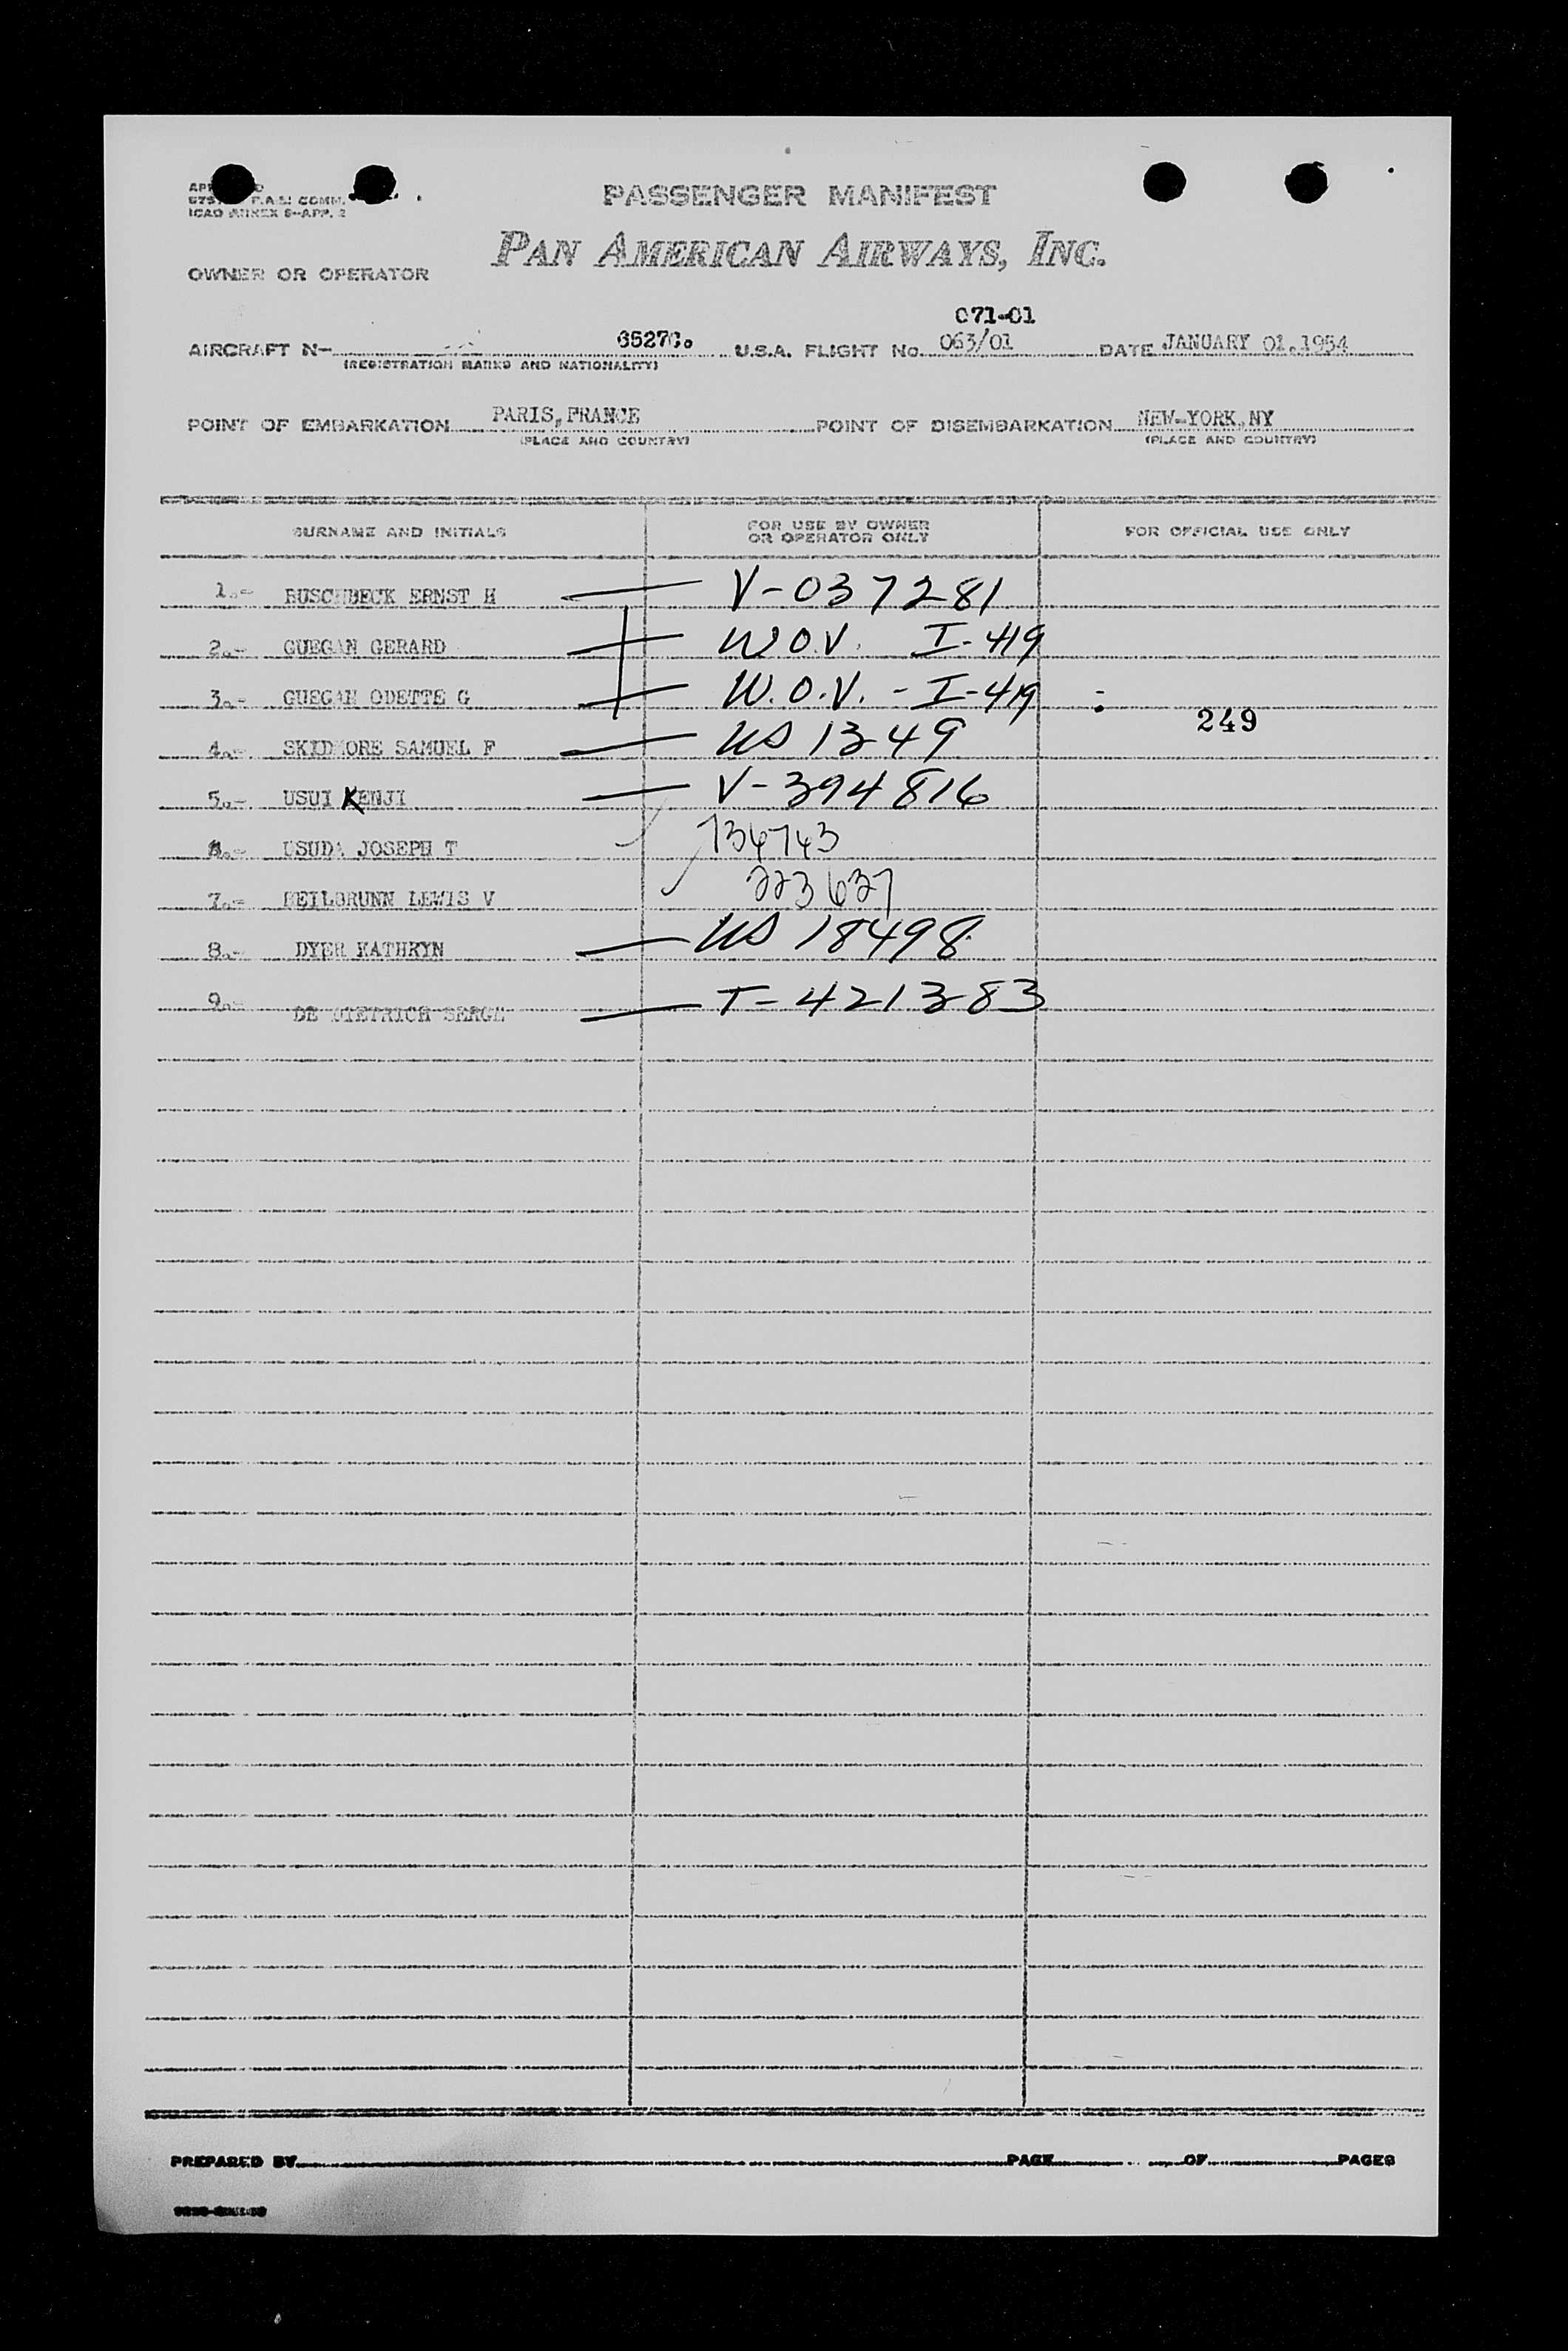 PASSENGER MANIFEST
ICAO ANNEX 9-APP. 2
PAN AMERICAN AIRWAYS, INC.
OWNER OR OPERATOR
071-01
AIRCRAFT N- 6527C. U.S.A. FLIGHT No. 063/01 DATE JANUARY 01.1954
(REGISTRATION MARKS AND NATIONALITY)
POINT OF EMBARKATION PARIS,FRANCE POINT OF DISEMBARKATION NEW-YORK,NY
(PLACE AND COUNTRY) (PLACE AND COUNTRY)
SURNAME AND INITIALS FOR USE BY OWNER OR OPERATOR ONLY FOR OFFICIAL USE ONLY
1.- BUSCHBECK ERNST H V-037281
2.- GUEGAN GERARD W.O.V. I-419
3.- GUEGAN ODETTE G W.O.V. - I-419
249
4.- SKIDMORE SAMUEL F US 1349
5.- USUI KENJI V-394816
6.- USUDA JOSEPH T 736743
7.- HEILBRUNN LEWIS V 223637
8.- DYER KATHRYN US 18498
9.- DE DIETRICH SERGE T-421383
PREPARED BY PAGE OF PAGES